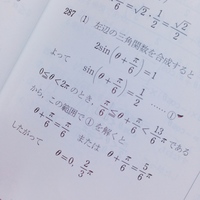 = √2 · 1/2 = √2/2
287 (1) 左辺の三角関数を合成すると
2sin(θ + π/6) = 1
よって sin(θ + π/6) = 1/2 …… ①
0 ≦ θ < 2π のとき, π/6 ≦ θ + π/6 < 13/6 π である
から, この範囲で ① を解くと,
θ + π/6 = π/6 または θ + π/6 = 5/6 π
したがって θ = 0, 2/3 π